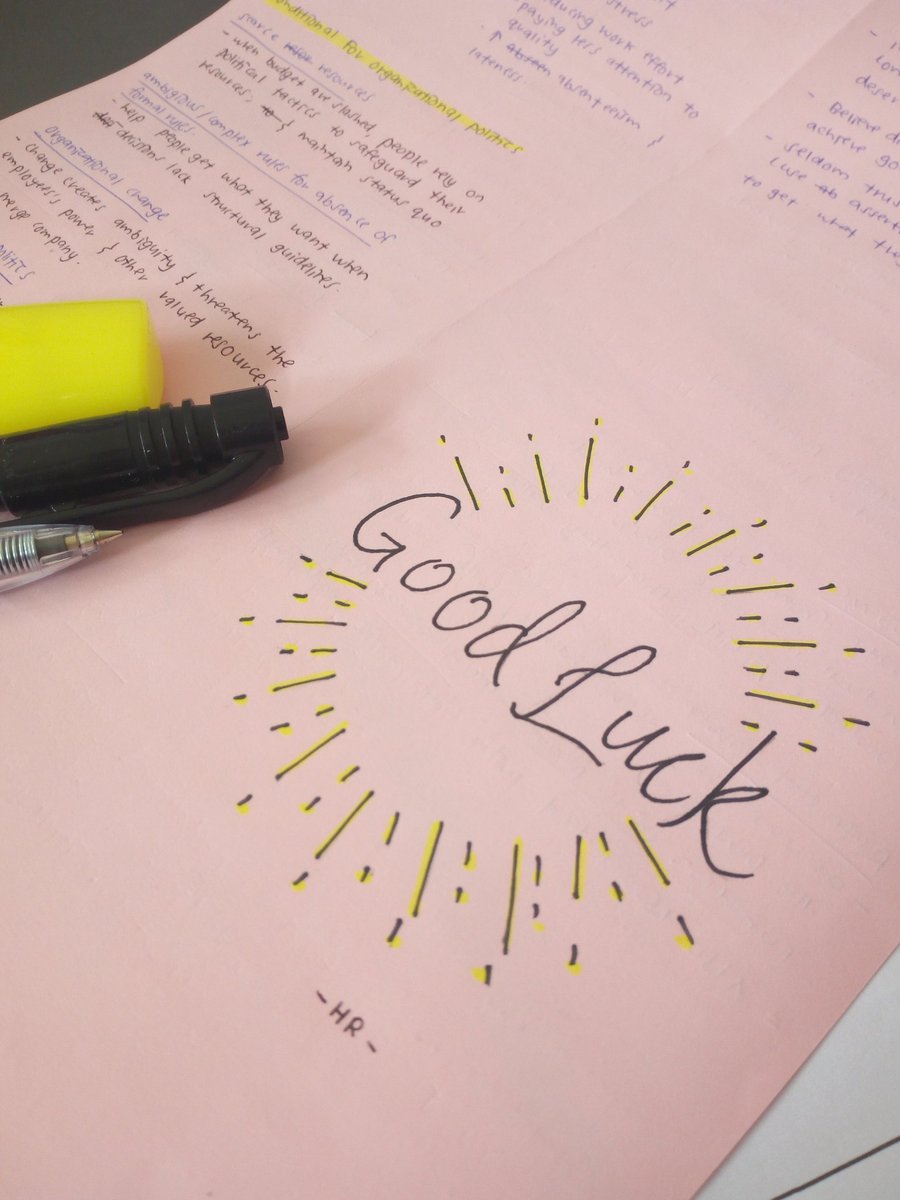 conditional for organizational politics
scarce resources
- when budget are slashed, people rely on
political tactics to safeguard their
resources, & maintain status quo
ambigious/complex rules for absence of
formal rules
- help people get what they want when
decisions lack structural guidelines.
organizational change
- change creates ambiguity & threatens the
employees's power & other valued resources.
merge company.
stress
reducing work effort
paying less attention to
quality
↑ absenteeism &
lateness.
- Believe
achieve
- seldom trust
(use assert
to get what
Good Luck
-HR-